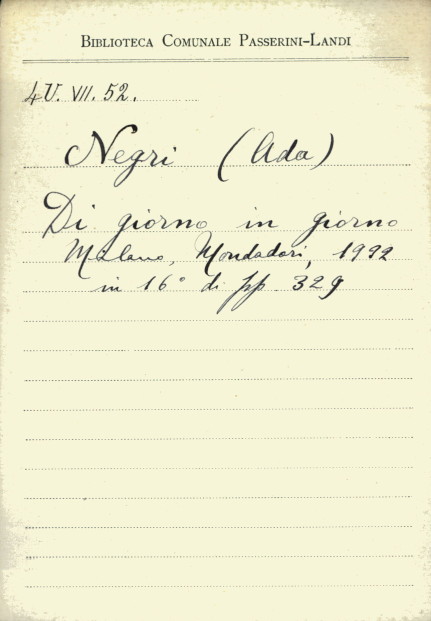 BIBLIOTECA COMUNALE PASSERINI-LANDI
4U. VII. 52.
Negri (Ada)
Di giorno in giorno
Milano, Mondadori, 1932
in 16° di pp. 329